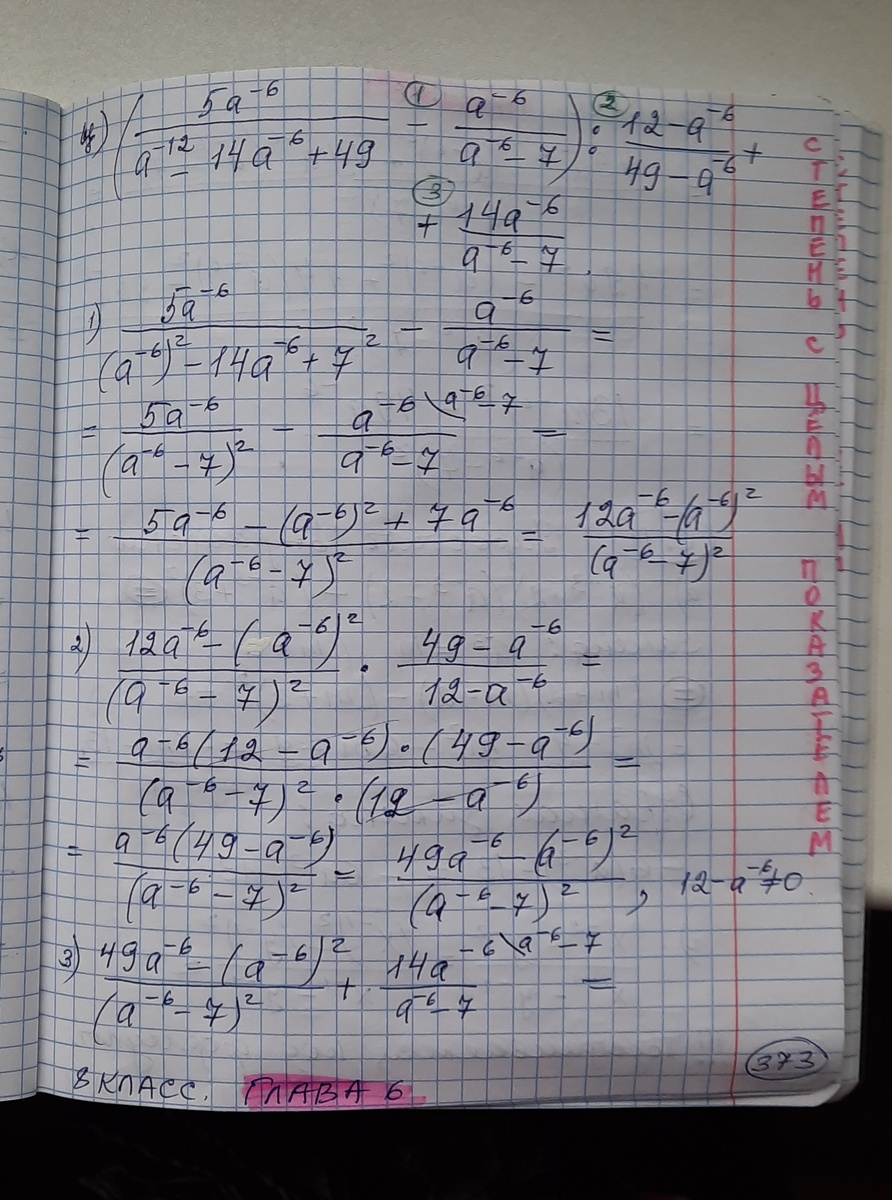 ц) (5a⁻⁶/(a⁻¹² - 14a⁻⁶ + 49) - a⁻⁶/(a⁻⁶ - 7)) : (12 - a⁻⁶)/(49 - a⁻⁶) +
① ② ③
+ 14a⁻⁶/(a⁻⁶ - 7).
1) 5a⁻⁶/((a⁻⁶)² - 14a⁻⁶ + 7²) - a⁻⁶/(a⁻⁶ - 7) =
= 5a⁻⁶/(a⁻⁶ - 7)² - a⁻⁶ \a⁻⁶ - 7/(a⁻⁶ - 7) =
= (5a⁻⁶ - (a⁻⁶)² + 7a⁻⁶)/(a⁻⁶ - 7)² = (12a⁻⁶ - (a⁻⁶)²)/(a⁻⁶ - 7)²
2) (12a⁻⁶ - (a⁻⁶)²)/(a⁻⁶ - 7)² · (49 - a⁻⁶)/(12 - a⁻⁶) =
= (a⁻⁶(12 - a⁻⁶) · (49 - a⁻⁶))/((a⁻⁶ - 7)² · (12 - a⁻⁶)) =
= a⁻⁶(49 - a⁻⁶)/(a⁻⁶ - 7)² = (49a⁻⁶ - (a⁻⁶)²)/(a⁻⁶ - 7)², 12 - a⁻⁶ ≠ 0.
3) (49a⁻⁶ - (a⁻⁶)²)/(a⁻⁶ - 7)² + 14a⁻⁶ \a⁻⁶ - 7/(a⁻⁶ - 7) =
373
8 КЛАСС. ГЛАВА 6
СТЕПЕНЬ С ЦЕЛЫМ ПОКАЗАТЕЛЕМ